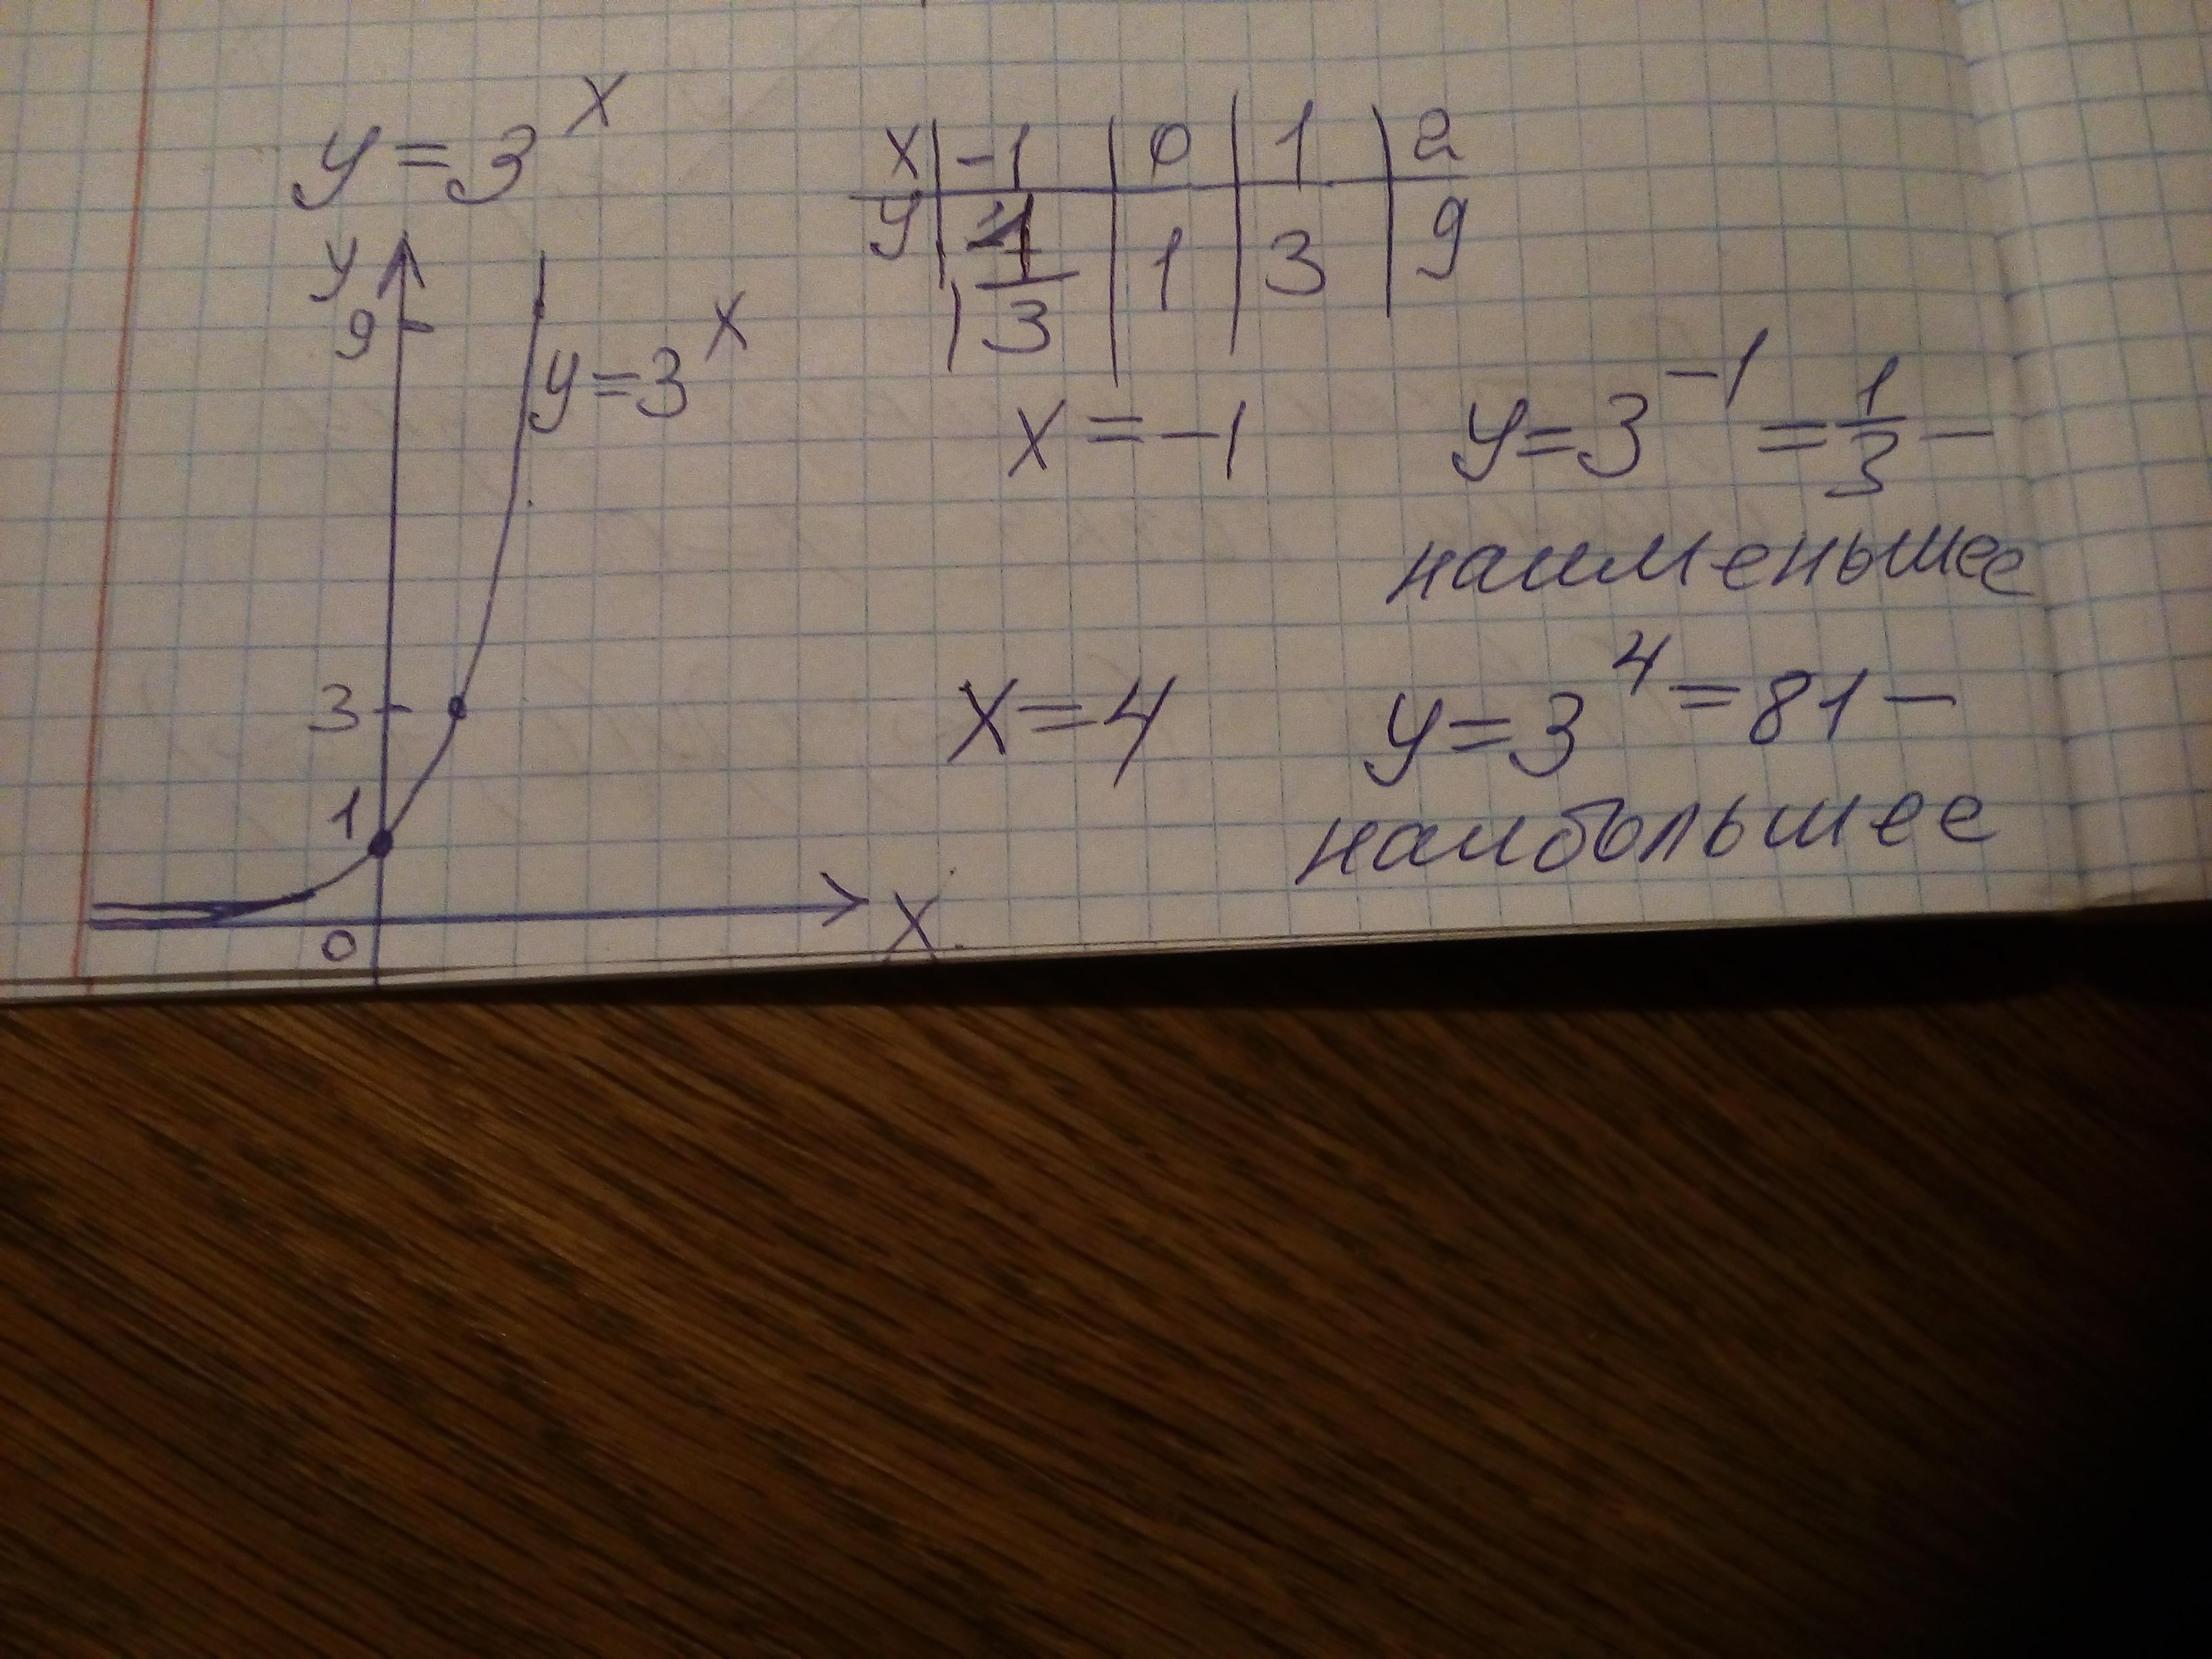 y = 3^x
x | -1 | 0 | 1 | 2
y | 1/3 | 1 | 3 | 9
y
9
y=3^x
3
1
0
x
x = -1 y = 3^-1 = 1/3 –
наименьшее
x = 4 y = 3^4 = 81 –
наибольшее